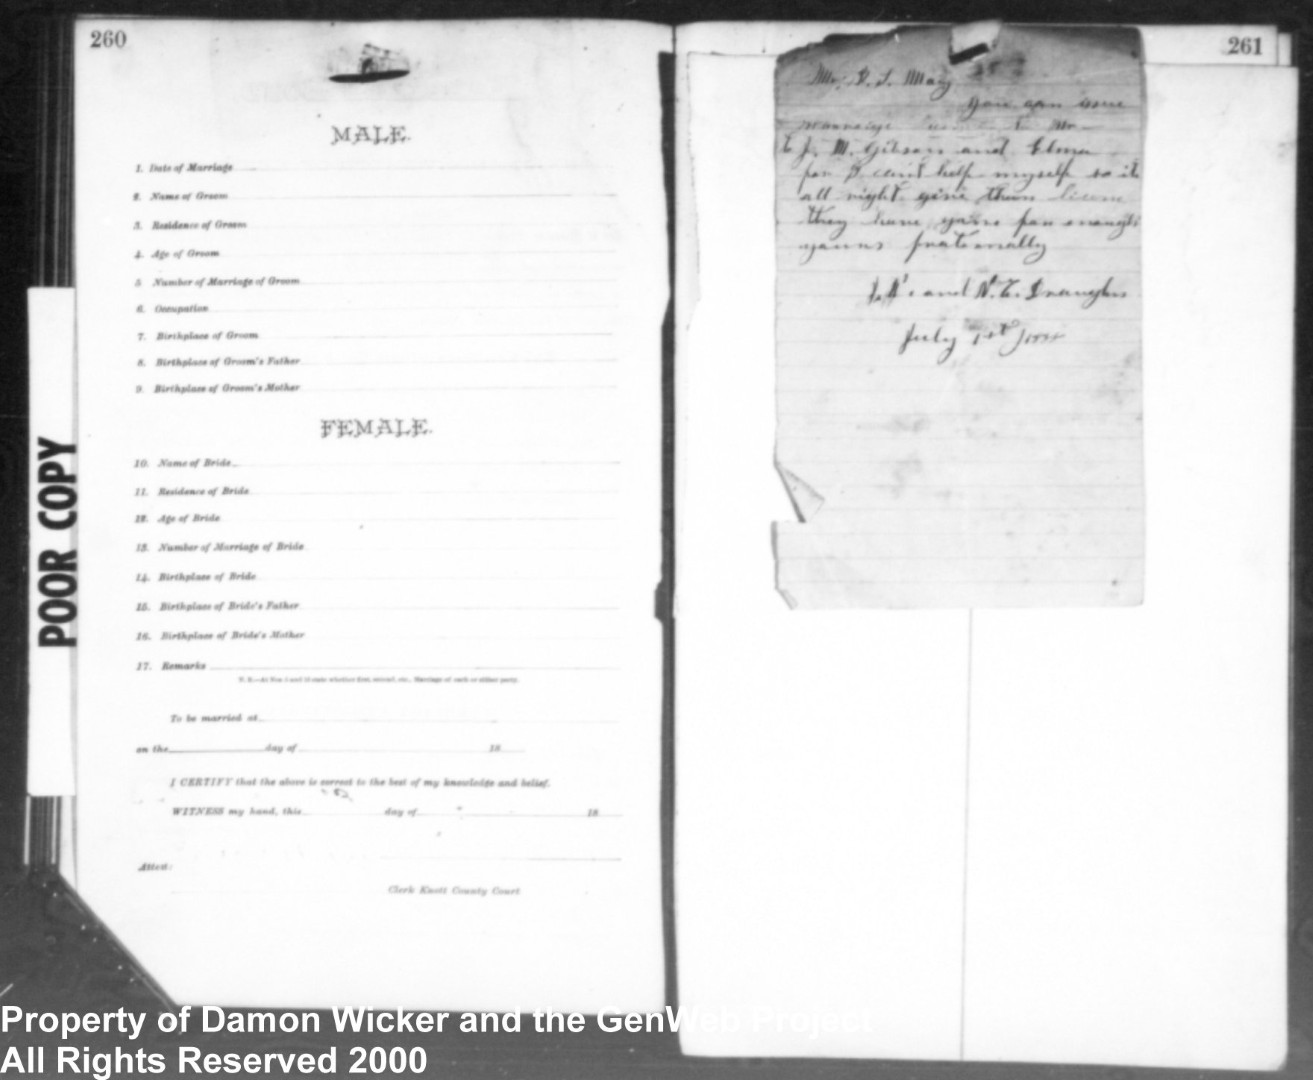 260
MALE.
1. Date of Marriage
2. Name of Groom
3. Residence of Groom
4. Age of Groom
5. Number of Marriage of Groom
6. Occupation
7. Birthplace of Groom
8. Birthplace of Groom's Father
9. Birthplace of Groom's Mother
FEMALE.
10. Name of Bride
11. Residence of Bride
12. Age of Bride
13. Number of Marriage of Bride
14. Birthplace of Bride
15. Birthplace of Bride's Father
16. Birthplace of Bride's Mother
17. Remarks
N. B.—At Nos 5 and 13 state whether first, second, etc., Marriage of each or either party.
To be married at
on the day of 18
I CERTIFY that the above is correct to the best of my knowledge and belief.
WITNESS my hand, this day of 18
Attest:
Clerk Knott County Court
261
Mr. May
you can issue
Mr
J. M. Gibson and
can't help myself so it
all right give them
they have
yours fraternally
and
July
POOR COPY
Property of Damon Wicker and the GenWeb Project
All Rights Reserved 2000